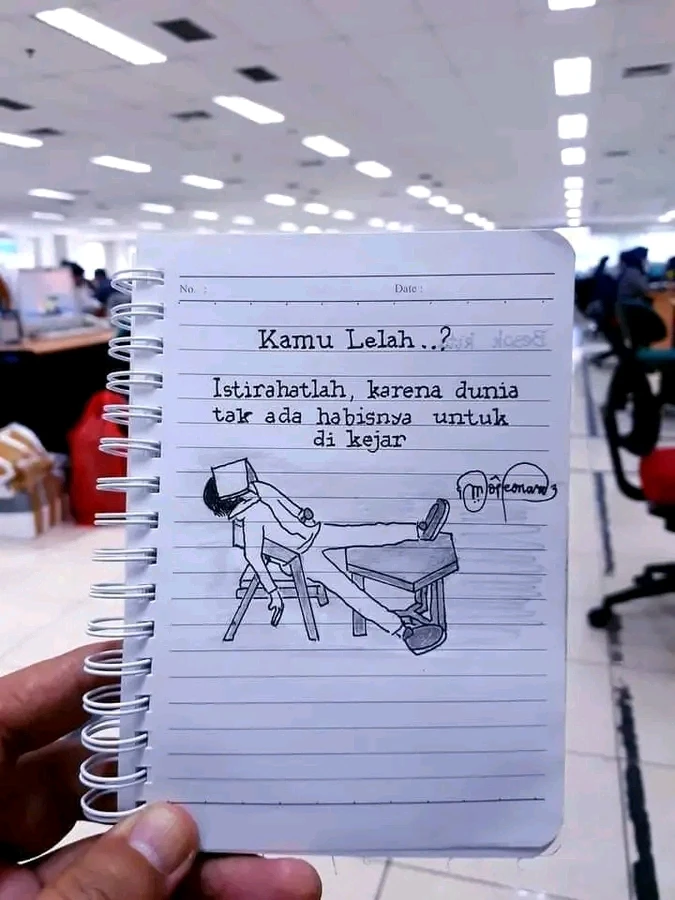 No. :
Date :
Kamu Lelah..?
Istirahatlah, karena dunia
tak ada habisnya untuk
di kejar